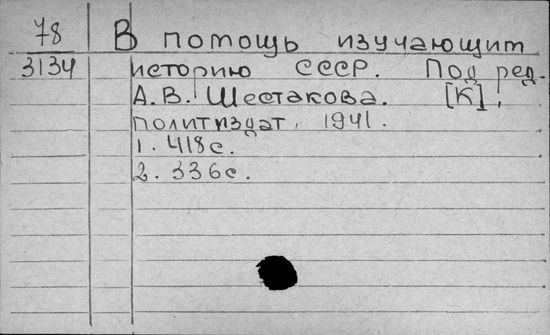 78
3134
В помощь изучающим
историю СССР. Под ред.
А.В. Шестакова. [К],
Политиздат, 1941.
1. 418с.
2. 336с.